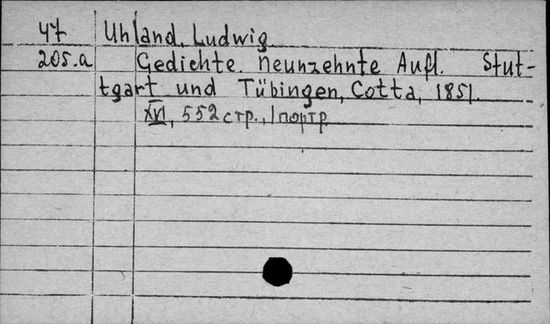 47 Uhland, Ludwig
205.a Gedichte. Neunzehnte Aufl. Stut-
tgart und Tübingen, Cotta, 1851.
XVI, 552 стр., 1 портр.